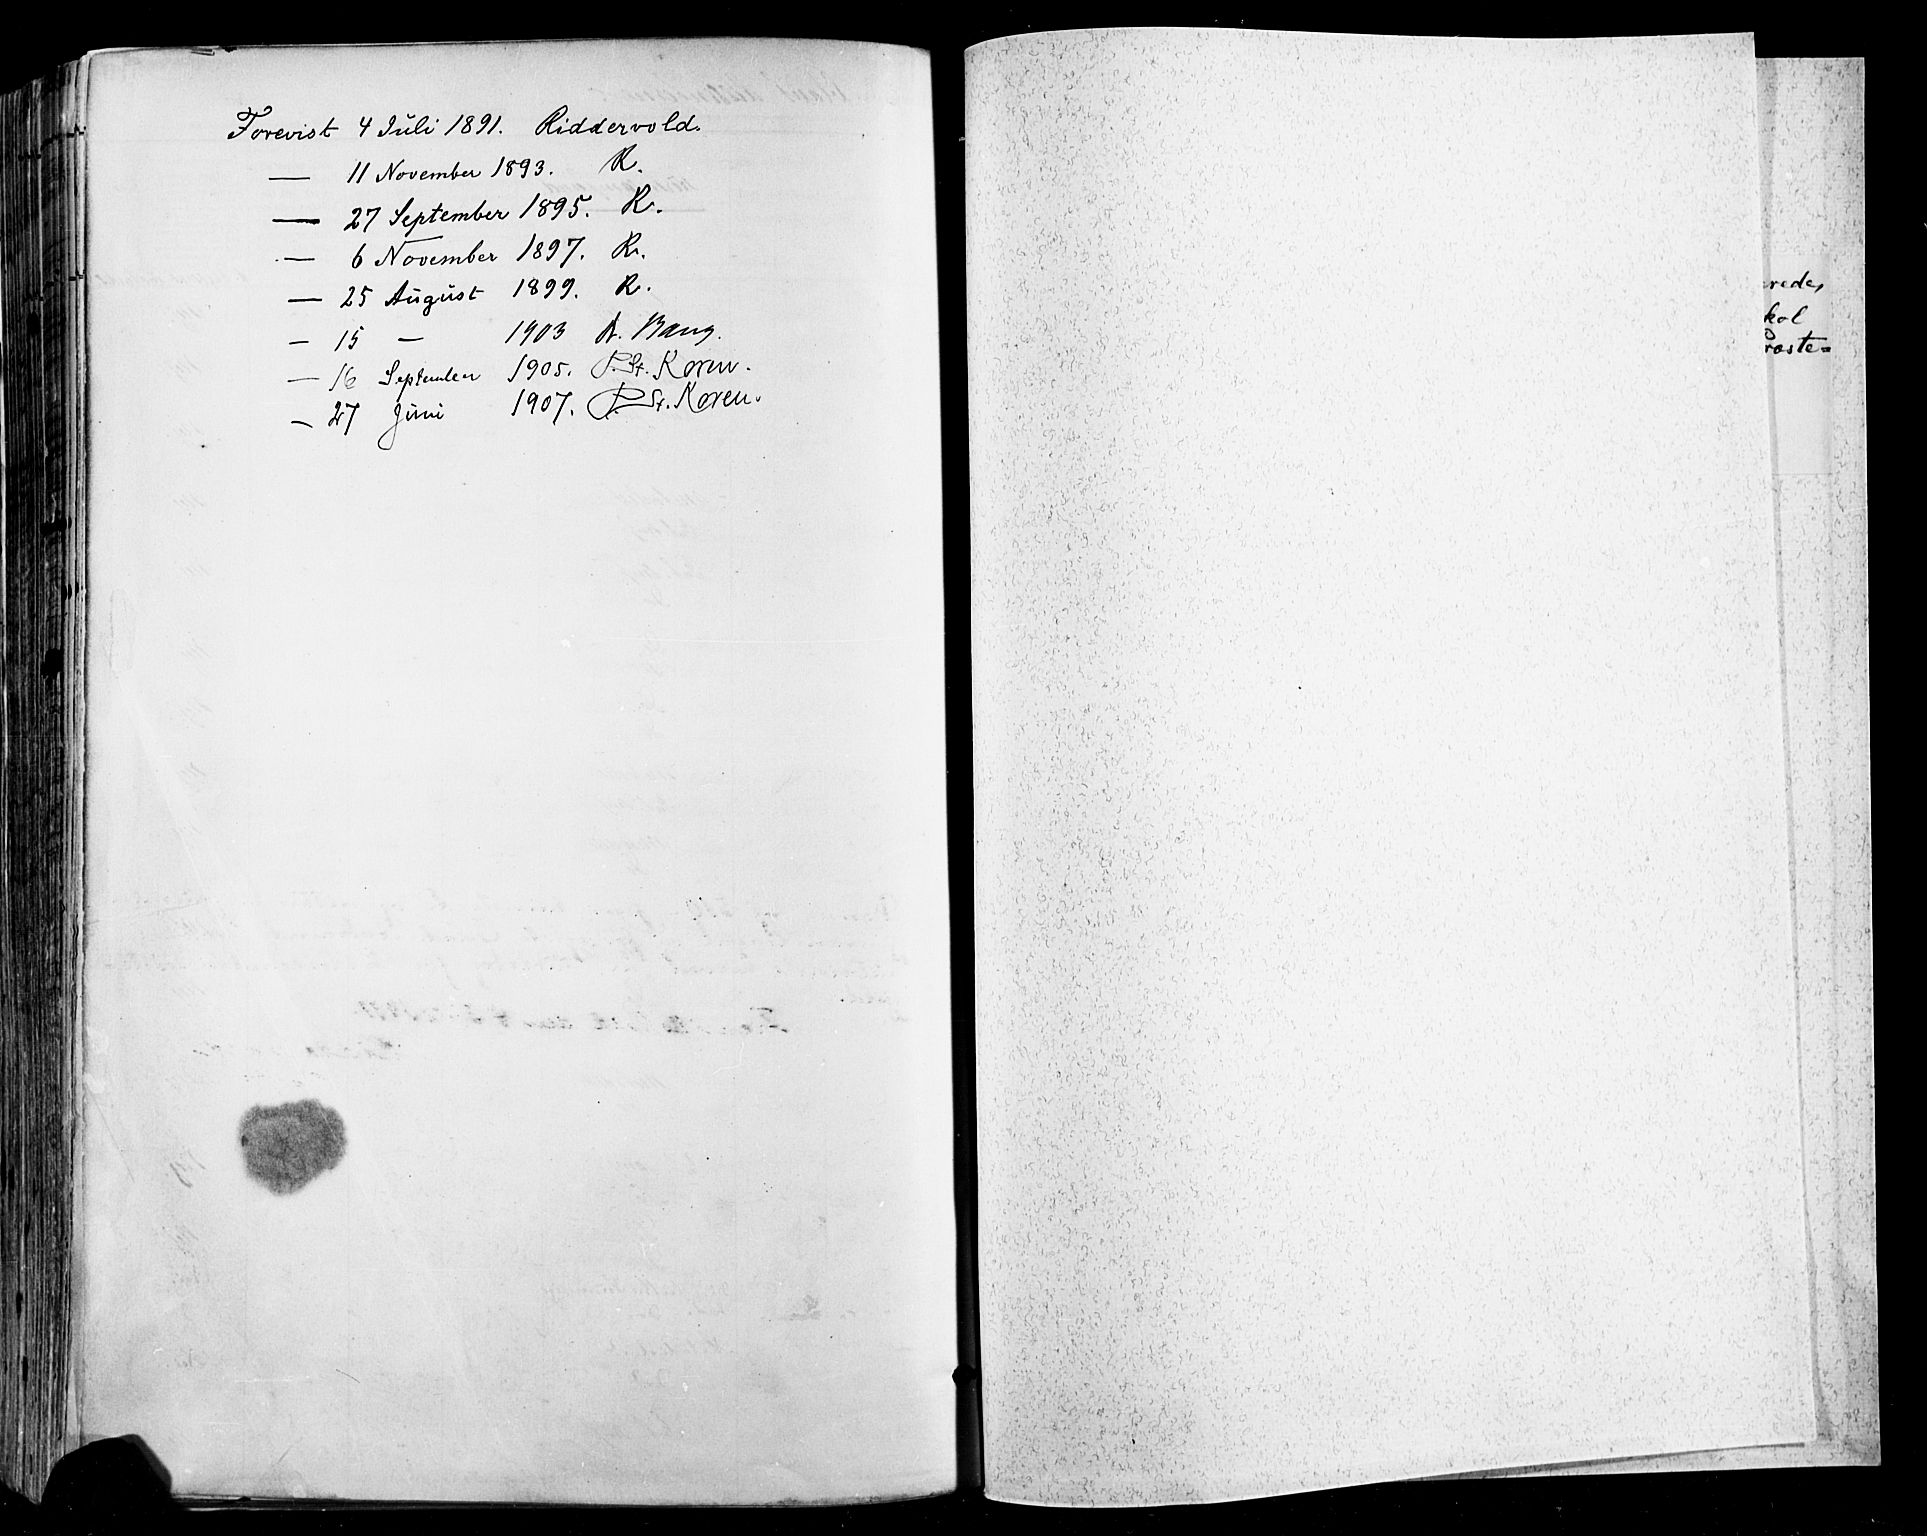 Forevist 4 Juli 1891. Riddervold.
— 11 November 1893. R.
— 27 September 1895. R.
— 6 November 1897. R.
— 25 August 1899. R.
— 15 — 1903 A. Bang.
— 16 September 1905. P. St. Koren.
— 27 Juni 1907. P. St. Koren.
rede,
kol
roste=